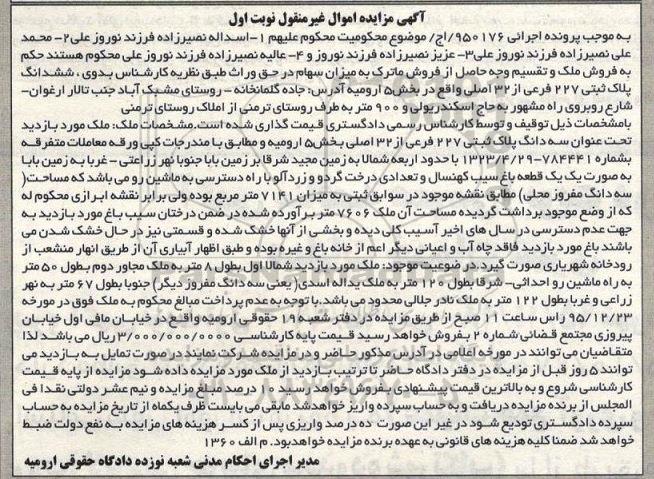 آگهی مزایده اموال غیرمنقول نوبت اول
به موجب پرونده اجرائی ۹۵۰۱۷۶/اج/ موضوع محکومیت محکوم علیهم ۱-اسداله نصیرزاده فرزند نوروز علی ۲- محمد
علی نصیرزاده فرزند نوروز علی۳- عزیز نصیرزاده فرزند نوروز و ۴- عالیه نصیرزاده فرزند نوروز علی محکوم هستند حکم
به فروش ملک و تقسیم وجه حاصل از فروش ماترک به میزان سهام در حق وراث طبق نظریه کارشناس بدوی ، ششدانگ
پلاک ثبتی ۲۲۷ فرعی از ۳۲ اصلی واقع در بخش۵ ارومیه آدرس: جاده گلمانخانه - روستای مشیک آباد جنب تالار ارغوان-
شارع روبروی راه مشهور به حاج اسکندر پولی و ۹۰۰ متر به طرف روستای ترمنی از املاک روستای ترمنی
بامشخصات ذیل توقیف و توسط کارشناس رسمی دادگستری قیمت گذاری شده است.مشخصات ملک: ملک مورد بازدید
تحت عنوان سه دانگ پلاک ثبتی ۲۲۷ فرعی از۳۲ اصلی بخش۵ ارومیه و مطابق با مندرجات کپی ورقه معاملات متفرقه
بشماره ۷۸۴۴۴۱-۱۳۲۳/۴/۲۹ با حدود اربعه شمالا به زمین مجید شرقا بر زمین بابا جنوبا نهر زراعتی - غربا به زمین بابا
به صورت یک یک قطعه باغ سیب کهنسال و تعدادی درخت گردو و زردآلو با راه دسترسی به ماشین رو می باشد که مساحت(
سه دانگ مفروز محلی) مطابق نقشه موجود در سوابق ثبتی به میزان ۷۱۴۱ متر مربع بوده ولی برابر نقشه ابرازی محکوم له
که از وضع موجود برداشت گردیده مساحت آن ملک ۷۶۰۶ متر برآورده شده در ضمن درختان سیب باغ مورد بازدید به
جهت عدم دسترسی در سال های اخیر آسیب کلی دیده و بخشی از آنها خشک شده و قسمتی نیز در حال خشک شدن می
باشند باغ مورد بازدید فاقد چاه آب و اعیانی دیگر اعم از خانه باغ و غیره بوده و طبق اظهار آبیاری آن از طریق انهار منشعب از
رودخانه شهریاری صورت گیرد. در ضوعیت موجود: ملک مورد بازدید شمالا اول بطول ۸ متر به ملک مجاور دوم بطول ۵۰ متر
به راه ماشین رو احداثی- شرقا بطول ۱۲۰ متر به ملک یداله اسدی( یعنی سه دانگ مفروز دیگر) جنوبا بطول ۶۷ متر به نهر
زراعی و غربا بطول ۱۲۲ متر به ملک نادر جلالی محدود می باشد.با توجه به عدم پرداخت مبالغ محکوم به ملک فوق در مورخه
۹۵/۱۲/۲۳ راس ساعت ۱۱ صبح از طریق مزایده در دفتر شعبه ۱۹ حقوقی ارومیه واقع در خیابان مافی اول خیابان
پیروزی مجتمع قضائی شماره ۲ بفروش خواهد رسید قیمت پایه کارشناسی ۳/۰۰۰/۰۰۰/۰۰۰ ریال می باشد لذا
متقاضیان می توانند در مورخه اعلامی در آدرس مذکور حاضر و در مزایده شرکت نمایند در صورت تمایل به بازدید می
توانند ۵ روز قبل از مزایده در دفتر دادگاه حاضر تا ترتیب بازدید از ملک مورد مزایده داده شود مزایده از پایه قیمت
کارشناسی شروع و به بالاترین قیمت پیشنهادی بفروش خواهد رسید ۱۰ درصد مبلغ مزایده و نیم عشر دولتی نقدا فی
المجلس از برنده مزایده دریافت و به حساب سپرده واریز خواهدشد مابقی می بایست ظرف یکماه از تاریخ مزایده به حساب
سپرده دادگستری تودیع شود در غیر این صورت ده درصد واریزی پس از کسر هزینه های مزایده به نفع دولت ضبط
خواهد شد ضمنا کلیه هزینه های قانونی به عهده برنده مزایده خواهدبود. م الف ۱۳۶۰
مدیر اجرای احکام مدنی شعبه نوزده دادگاه حقوقی ارومیه